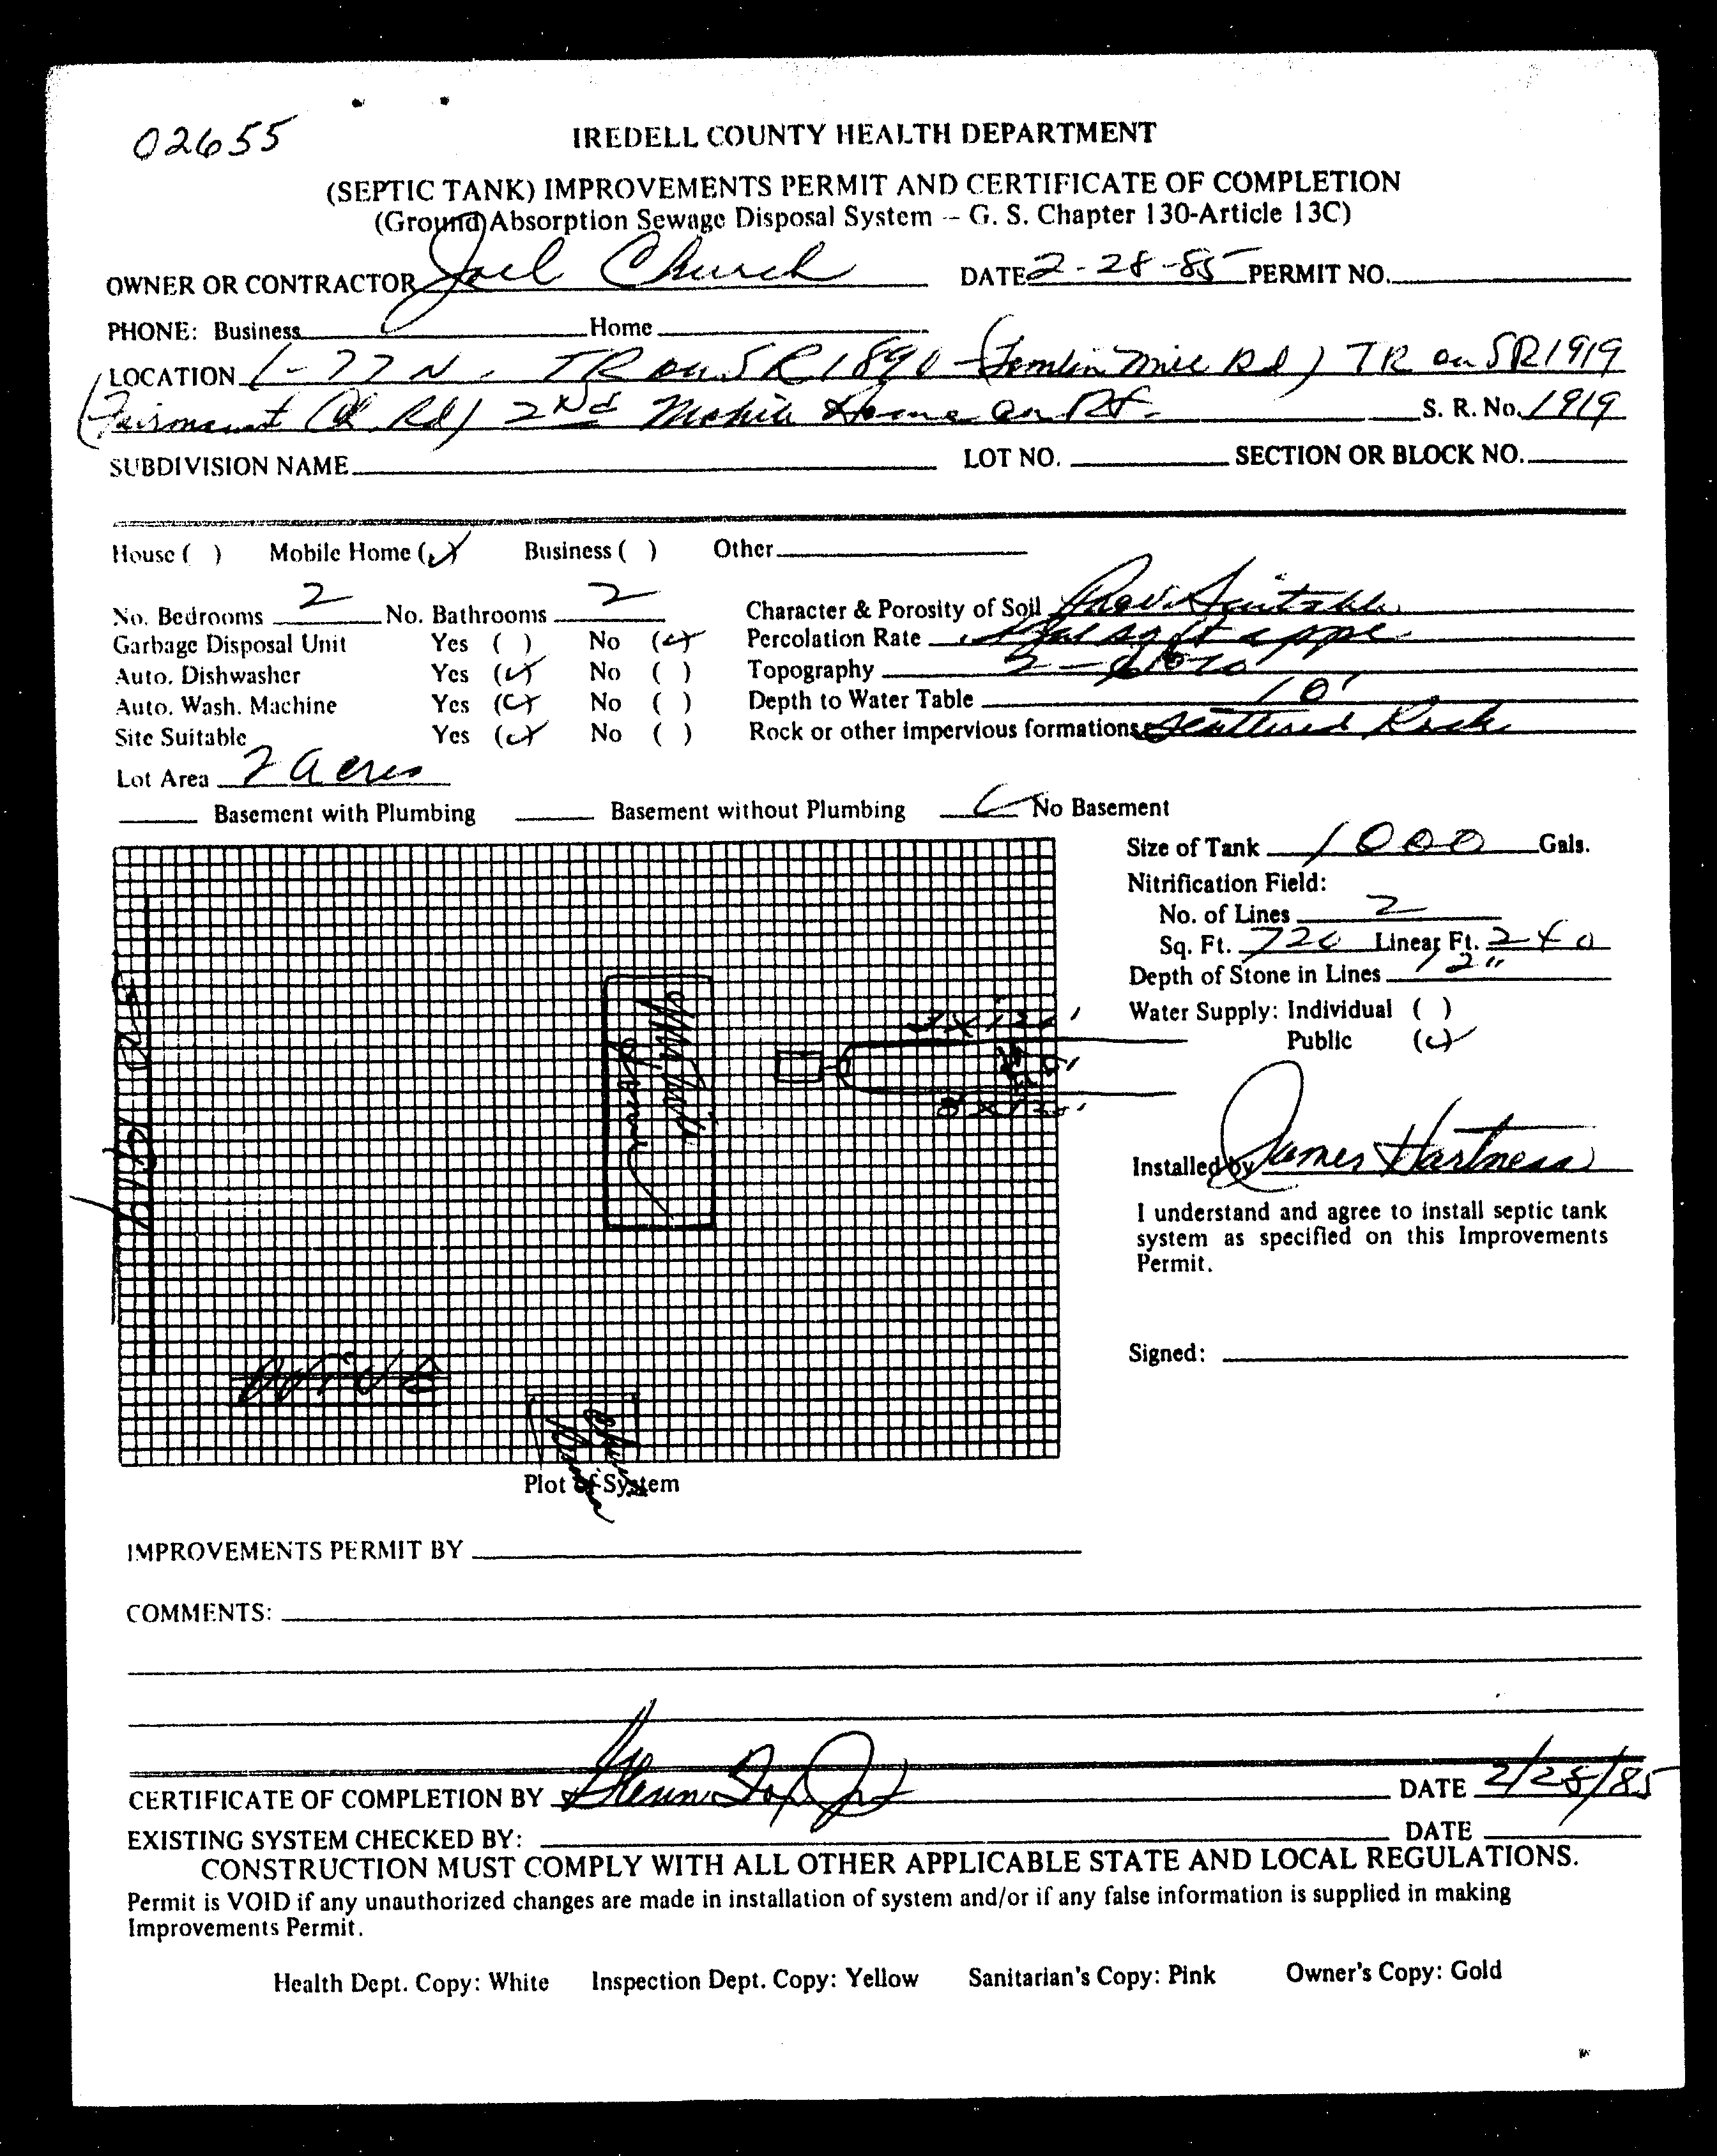 02655
IREDELL COUNTY HEALTH DEPARTMENT
(SEPTIC TANK) IMPROVEMENTS PERMIT AND CERTIFICATE OF COMPLETION
(Ground Absorption Sewage Disposal System -- G. S. Chapter 130-Article 13C)
OWNER OR CONTRACTOR Joel Church DATE 2-28-85 PERMIT NO.
PHONE: Business Home
LOCATION I-77 N. TR on SR 1890 (Tomlin Mill Rd) TR on SR1919
(Fairmount Ch. Rd) 2nd Mobile Home on Rt. S. R. No. 1919
SUBDIVISION NAME LOT NO. SECTION OR BLOCK NO.
House ( ) Mobile Home (✓) Business ( ) Other
No. Bedrooms 2 No. Bathrooms 2 Character & Porosity of Soil Prov. Suitable
Garbage Disposal Unit Yes ( ) No (✓) Percolation Rate
Auto. Dishwasher Yes (✓) No ( ) Topography
Auto. Wash. Machine Yes (✓) No ( ) Depth to Water Table 10'
Site Suitable Yes (✓) No ( ) Rock or other impervious formations Scattered Rock
Lot Area 2 Acres
Basement with Plumbing Basement without Plumbing ✓ No Basement
Size of Tank 1000 Gals.
Nitrification Field:
No. of Lines 2
Sq. Ft. 720 Linear Ft. 240
Depth of Stone in Lines 12"
Water Supply: Individual ( )
Public (✓)
SR 1919
Mobile Home
3 x 120'
3 x 120'
Drive
Installed by James Hartness
I understand and agree to install septic tank
system as specified on this Improvements
Permit.
Signed:
Plot of System
IMPROVEMENTS PERMIT BY
COMMENTS:
CERTIFICATE OF COMPLETION BY DATE 2/28/85
EXISTING SYSTEM CHECKED BY: DATE
CONSTRUCTION MUST COMPLY WITH ALL OTHER APPLICABLE STATE AND LOCAL REGULATIONS.
Permit is VOID if any unauthorized changes are made in installation of system and/or if any false information is supplied in making
Improvements Permit.
Health Dept. Copy: White Inspection Dept. Copy: Yellow Sanitarian's Copy: Pink Owner's Copy: Gold